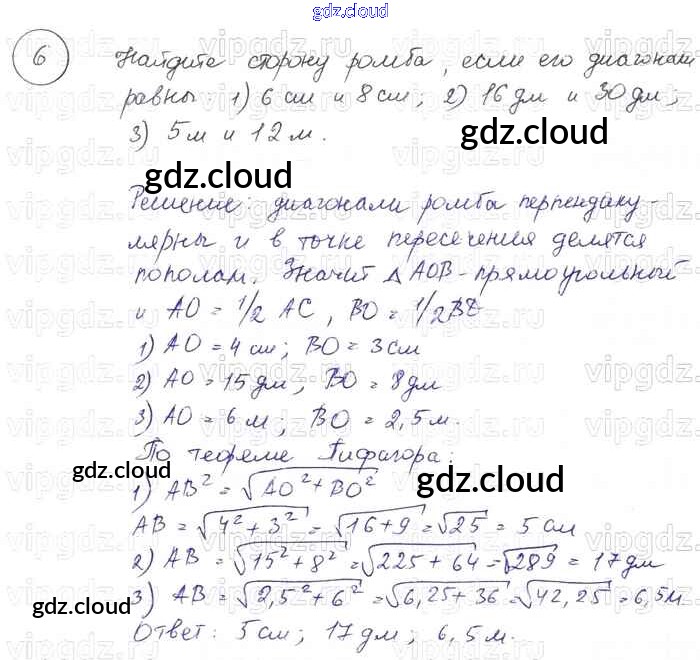 gdz.cloud
6 Найдите сторону ромба, если его диагонали
равны 1) 6 см и 8 см; 2) 16 дм и 30 дм;
3) 5 м и 12 м.
gdz.cloud
gdz.cloud
Решение: диагонали ромба перпендику-
лярны и в точке пересечения делятся
пополам. Значит △ AOB - прямоугольный
и AO = 1/2 AC, BO = 1/2
1) AO = 4 см; BO = 3 см
2) AO = 15 дм, BO = 8 дм
3) AO = 6 м; BO = 2,5 м.
По теореме Пифагора:
gdz.cloud
gdz.cloud
1) AB² = √AO² + BO²
AB = √4² + 3² = √16 + 9 = √25 = 5 см
2) AB = √15² + 8² = √225 + 64 = √289 = 17 дм
3) AB = √2,5² + 6² = √6,25 + 36 = √42,25 = 6,5 м
gdz.cloud
gdz.cloud
Ответ: 5 см; 17 дм; 6,5 м.